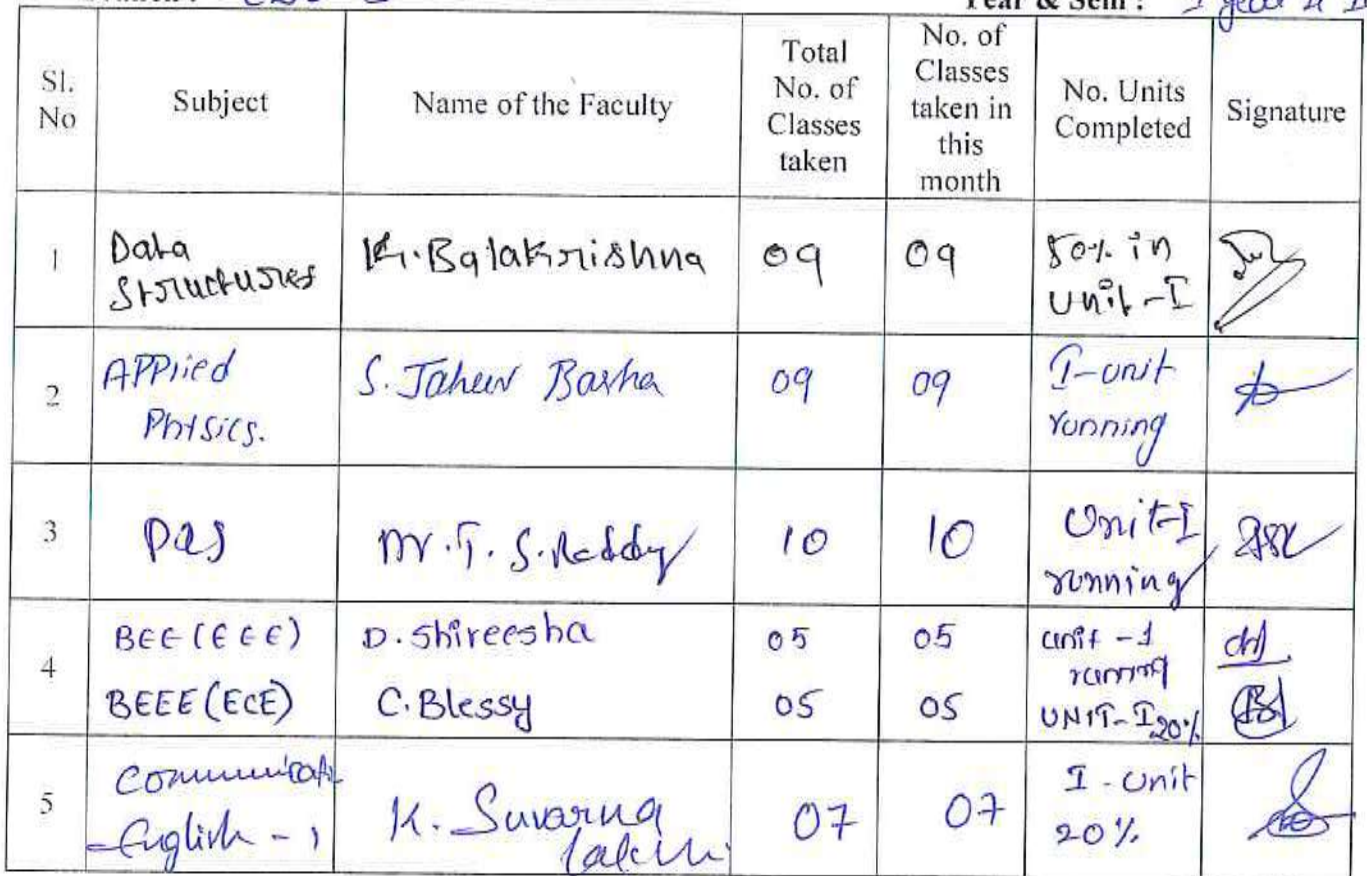 Year & Sem : I year &
Sl. No Subject Name of the Faculty Total No. of Classes taken No. of Classes taken in this month No. Units Completed Signature
1 Data Structures K. Balakrishna 09 09 50% in Unit-I
2 Applied Physics. S. Taheer Basha 09 09 I-unit running
3 P&S Mr. T. S. Reddy 10 10 Unit-I running
4 BEE (EEE) D. Shireesha 05 05 unit -1 running
BEEE (ECE) C. Blessy 05 05 UNIT-I 20%
5 English - 1 K. Suvarna 07 07 I - Unit 20%